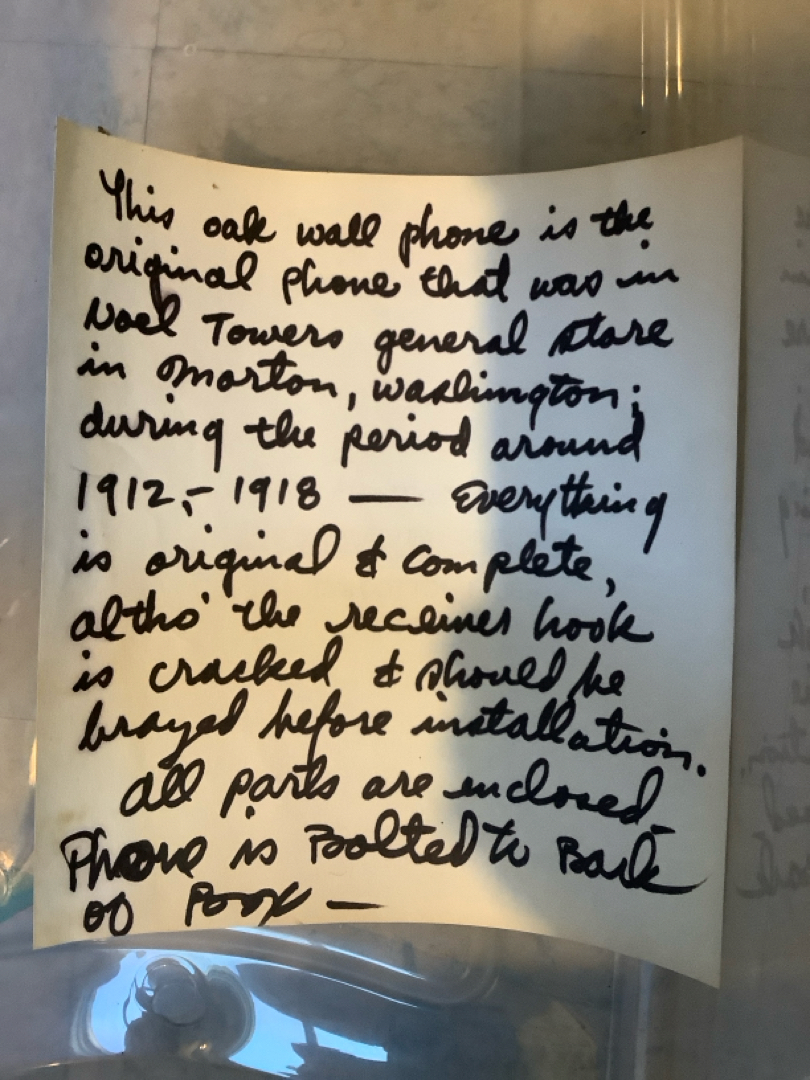 This oak wall phone is the
original phone that was in
Noel Towers general store
in Morton, Washington;
during the period around
1912,- 1918 — Everything
is original & complete,
altho' the receiver hook
is cracked & should be
brazed before installation.
All parts are enclosed-
Phone is Bolted to Back
of Box —